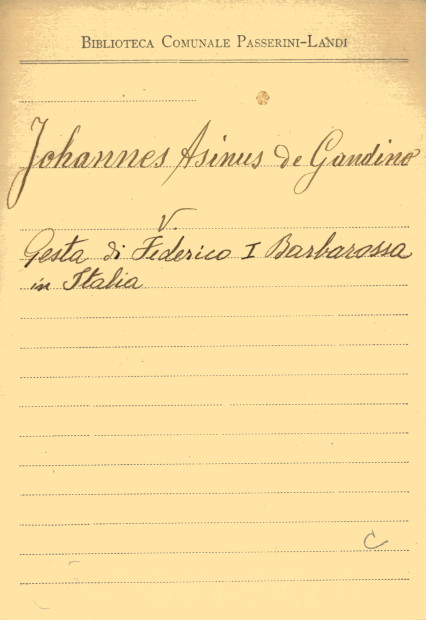 Biblioteca Comunale Passerini-Landi
Johannes Asinus de Gandino
V.
Gesta di Federico I Barbarossa
in Italia
C